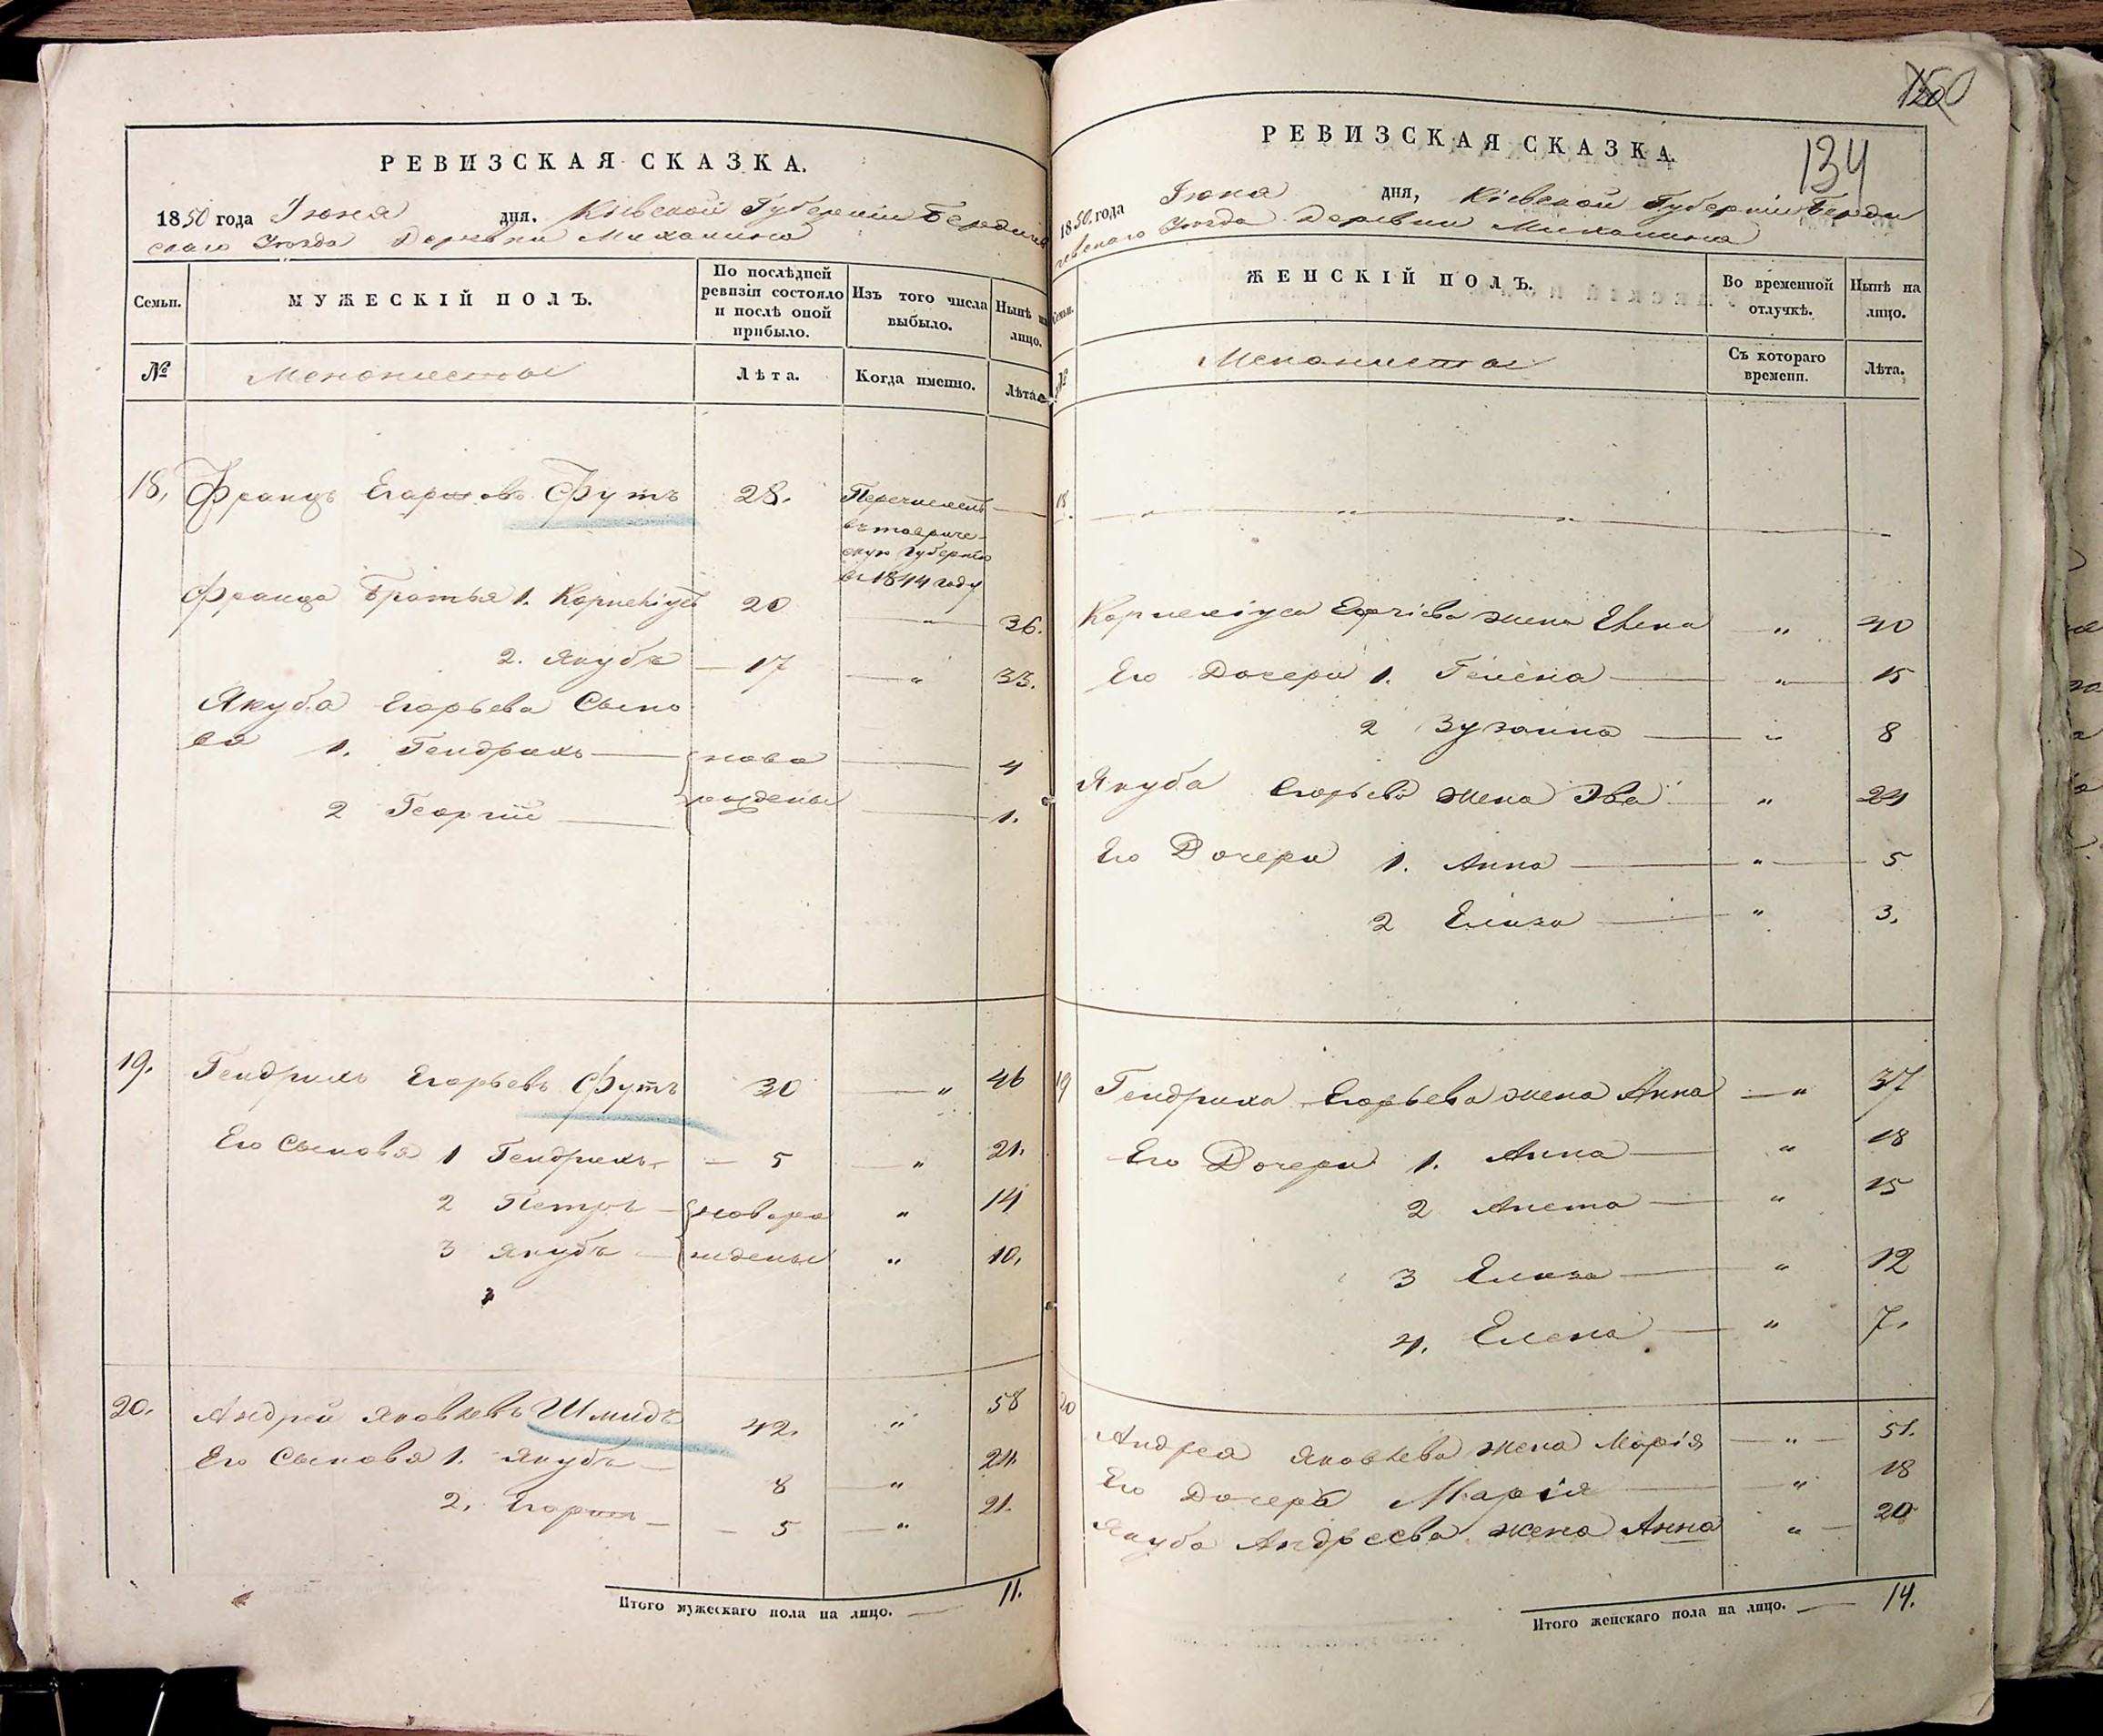 РЕВИЗСКАЯ СКАЗКА.
1850 года Іюня дня, Кіевской Губерніи Бердичев
скаго Уѣзда Деревни Михалина
Семьи.
МУЖЕСКІЙ ПОЛЪ.
По послѣдней ревизіи состояло и послѣ оной прибыло.
Изъ того числа выбыло.
Нынѣ на лицо.
№
Менонисты
Лѣта.
Когда именно.
Лѣта.
18, Францъ Егоровъ Футъ 28. Перечисленъ
въ тавриче-
скую Губернію
въ 1844 году
Франца Братья 1. Корнеліусъ 20 " 36.
2. Якубъ 17 " 33.
Якуба Егорьева Сыно
вья 1. Гендрихъ ново 4
2 Георгій рождены 1.
19. Гендрихъ Егорьевъ Футъ 30 " 46
Его Сыновья 1 Гендрихъ 5 " 21.
2 Петръ новоро " 14
3 Якубъ ждены " 10.
20. Андрей Яковлевъ Шмидъ 42. " 58
Его Сыновья 1. Якубъ 8 " 24.
2. Егоръ 5 " 21.
Итого мужескаго пола на лицо. 11.
150
134
РЕВИЗСКАЯ СКАЗКА.
1850 года Іюня дня, Кіевской Губерніи Берди
чевскаго Уѣзда Деревни Михалина
Семьи.
ЖЕНСКІЙ ПОЛЪ.
Во временной отлучкѣ.
Нынѣ на лицо.
№
Менонисты
Съ котораго времени.
Лѣта.
18. " " "
Корнеліуса жена Елена " 40
Его Дочери 1. Гелена " 15
2 Зузанна " 8
Якуба Егорьева жена Эва " 24
Его Дочери 1. Анна " 5
2 Елиза " 3.
19 Гендриха Егорьева жена Анна " 37
Его Дочери 1. Анна " 18
2 Анета " 15
3 Елиза " 12
4. Елена " 7.
20 Андрея Яковлева жена Марія " 51.
Его Дочерь Марія " 18
Якуба Андреева жена Анна " 20
Итого женскаго пола на лицо. 14.